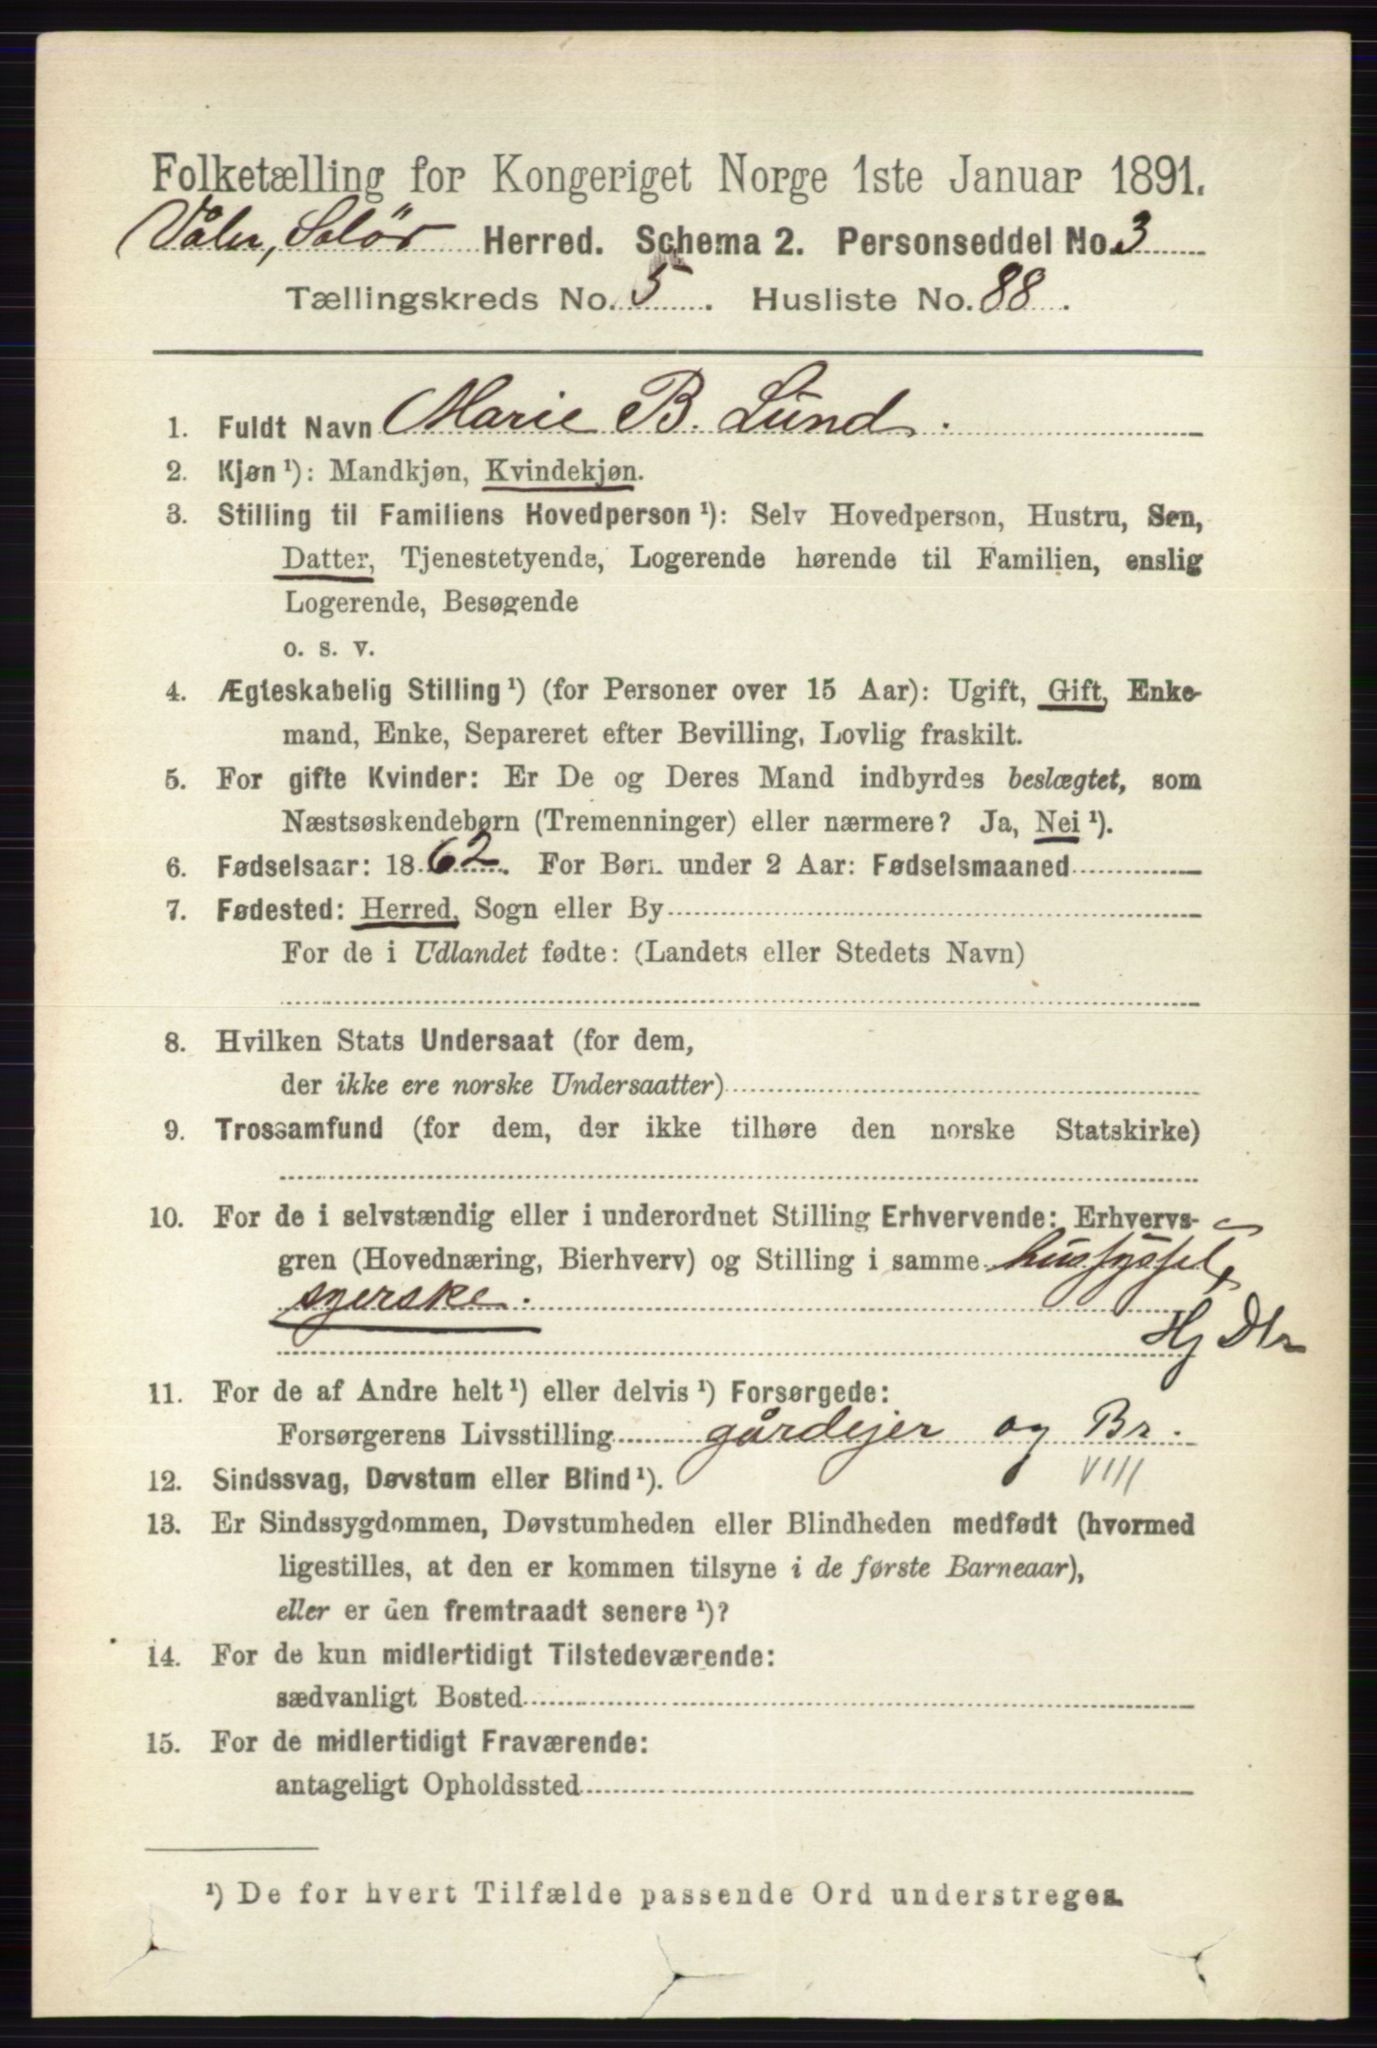 Folketælling for Kongeriget Norge 1ste Januar 1891.
Våler, Solör Herred. Schema 2. Personseddel No. 3
Tællingskreds No. 5. Husliste No. 88.
1. Fuldt Navn Marie B. Lund.
2. Kjøn ¹): Mandkjøn, Kvindekjøn.
3. Stilling til Familiens Hovedperson ¹): Selv Hovedperson, Hustru, Søn,
Datter, Tjenestetyende, Logerende hørende til Familien, enslig
Logerende, Besøgende
o. s. v.
4. Ægteskabelig Stilling ¹) (for Personer over 15 Aar): Ugift, Gift, Enke-
mand, Enke, Separeret efter Bevilling, Lovlig fraskilt.
5. For gifte Kvinder: Er De og Deres Mand indbyrdes beslægtet, som
Næstsøskendebørn (Tremenninger) eller nærmere? Ja, Nei ¹).
6. Fødselsaar: 1862. For Børn under 2 Aar: Fødselsmaaned
7. Fødested: Herred, Sogn eller By
For de i Udlandet fødte: (Landets eller Stedets Navn)
8. Hvilken Stats Undersaat (for dem,
der ikke ere norske Undersaatter)
9. Trossamfund (for dem, der ikke tilhøre den norske Statskirke)
10. For de i selvstændig eller i underordnet Stilling Erhvervende: Erhvervs-
gren (Hovednæring, Bierhverv) og Stilling i samme hussyssel,
syerske.
Hj Dtr
11. For de af Andre helt ¹) eller delvis ¹) Forsørgede:
Forsørgerens Livsstilling gårdejer og Br.
VIII
12. Sindssvag, Døvstum eller Blind ¹).
13. Er Sindssygdommen, Døvstumheden eller Blindheden medfødt (hvormed
ligestilles, at den er kommen tilsyne i de første Barneaar),
eller er den fremtraadt senere ¹)?
14. For de kun midlertidigt Tilstedeværende:
sædvanligt Bosted
15. For de midlertidigt Fraværende:
antageligt Opholdssted
¹) De for hvert Tilfælde passende Ord understreges.